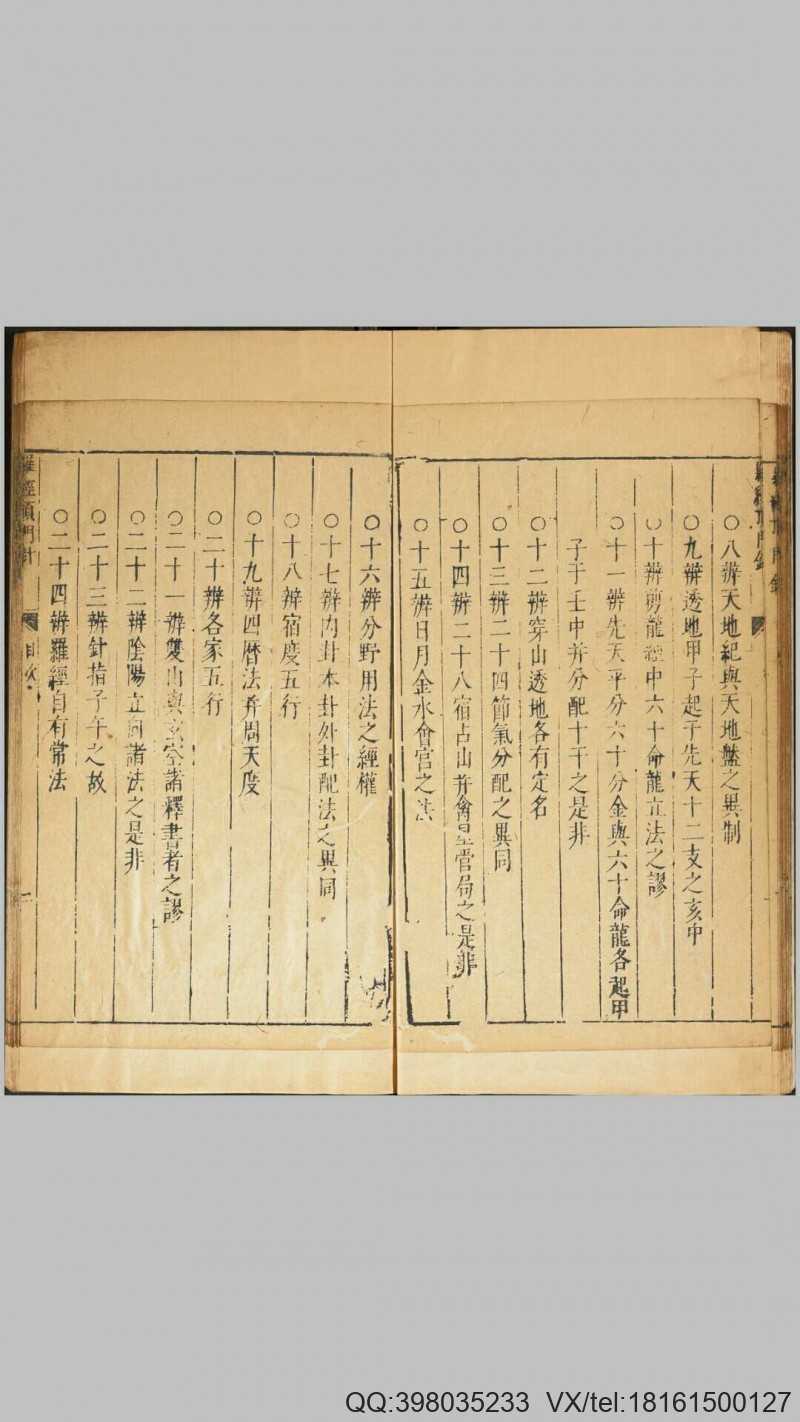 ○八辨天地紀與天地盤之異制
○九辨透地甲子起于先天十二支之亥中
○十辨剪龍經中六十命龍立法之謬
○十一辨先天平分六十分金與六十命龍各起甲
子于壬中并分配十干之是非
○十二辨穿山透地各有定名
○十三辨二十四節氣分配之異同
○十四辨二十八宿占山并禽星管局之是非
○十五辨日月金水會宮之法
○十六辨分野用法之經權
○十七辨內卦本卦外卦配法之異同
○十八辨宿度五行
○十九辨四曆法并周天度
○二十辨各家五行
○二十一辨雙山與玄空諸釋書者之謬
○二十二辨陰陽立向諸法之是非
○二十三辨針指子午之故
○二十四辨羅經自有常法
羅經頂門針 目次 二
QQ:398035233 VX/tel:18161500127